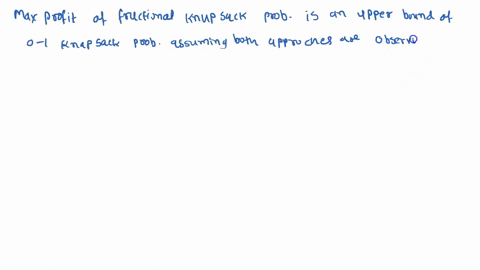 Max profit of fractional knapsack prob. is an upper bound of
0-1 knapsack prob. assuming both approches are observ